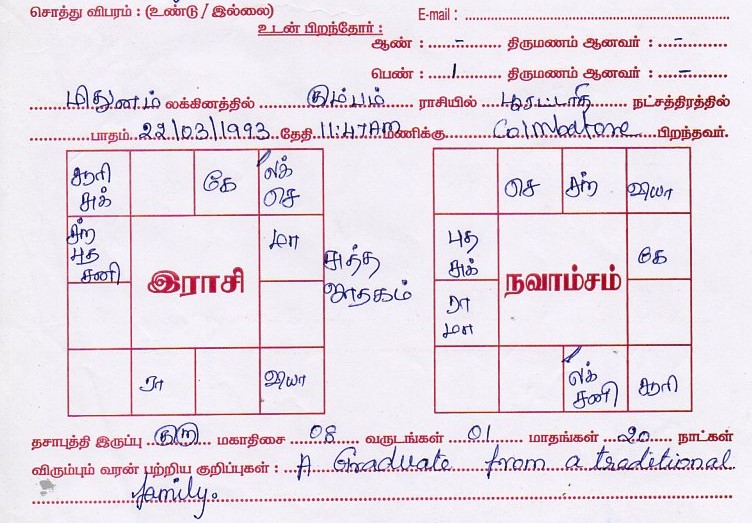 சொத்து விபரம் : (உண்டு / இல்லை) E-mail :
உடன் பிறந்தோர் :
ஆண் : - திருமணம் ஆனவர் : -
பெண் : 1 திருமணம் ஆனவர் : -
மிதுனம் லக்கினத்தில் கும்பம் ராசியில் பூரட்டாதி நட்சத்திரத்தில்
பாதம் 22/03/1993 தேதி 11:47AM மணிக்கு Coimbatore பிறந்தவர்.
சூரி சுக் கே லக் செ
சந்ற புத சனி மா
இராசி
ரா வியா
சுத்த ஜாதகம்
செ சந்ற வியா
புத சுக் கே
நவாம்சம்
ரா மா
லக் சனி சூரி
தசாபுத்தி இருப்பு குரு மகாதிசை 08 வருடங்கள் 01 மாதங்கள் 20 நாட்கள்
விரும்பும் வரன் பற்றிய குறிப்புகள் : A Graduate from a traditional
family.